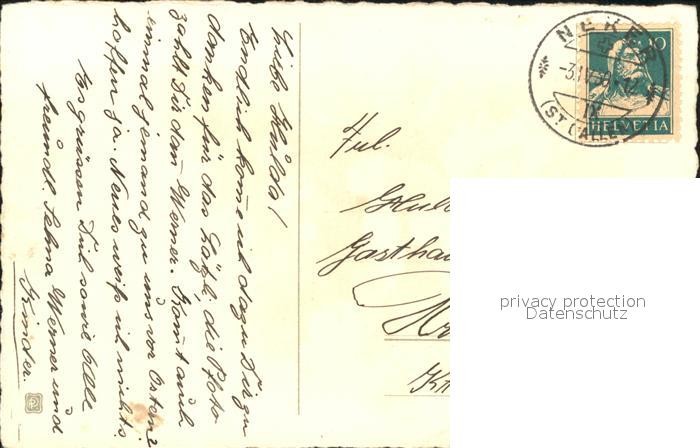 Liebe Hulda!
Endlich kome ich dazu Dir zu
danken für das Häsli, die Foto
zahlt Dir dan Werner. Komt auch
einmal jemand zu uns vor Ostern?
hoffen ja. Neues weiss ich nichts
Es grüssen Dich sowie Alle
freundl. Selma Werner und
Kinder.
Frl.
Huld
Gasthau
NEKER
(ST. GALLEN)
10
HELVETIA
privacy protection
Datenschutz